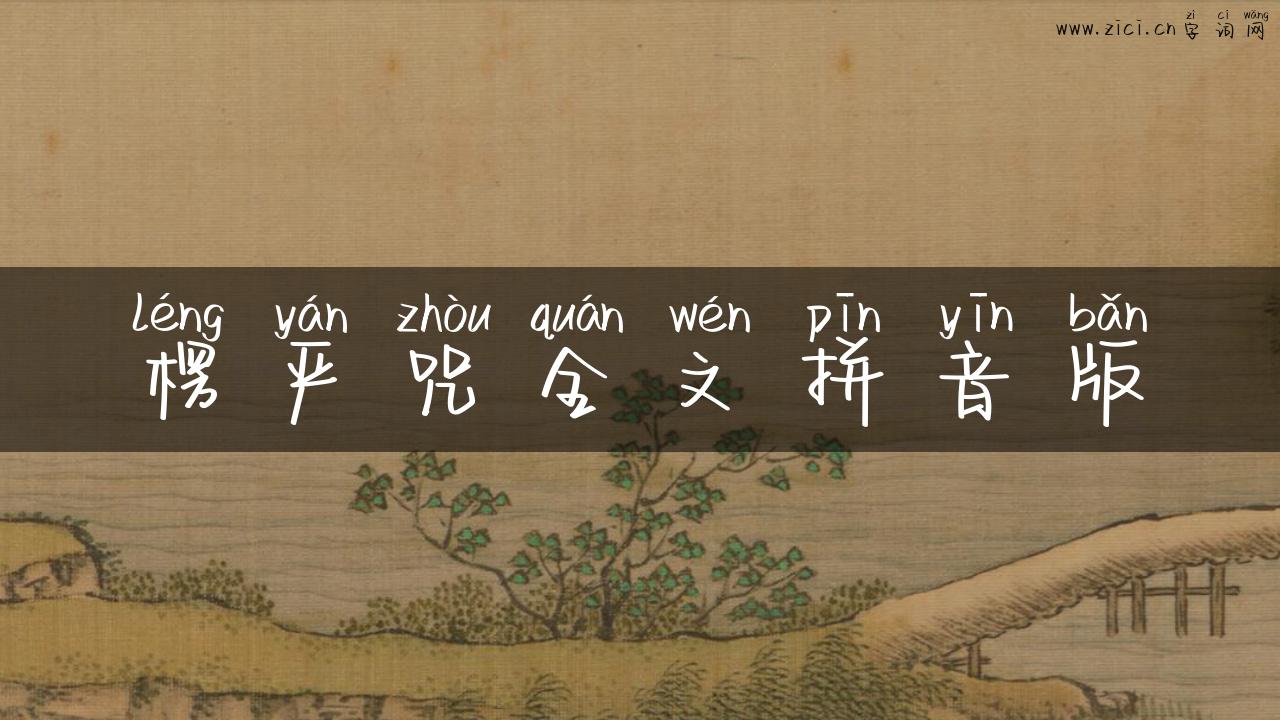 zì cí wǎng
www.zici.cn 字词网
léng yán zhòu quán wén pīn yīn bǎn
楞严咒全文拼音版